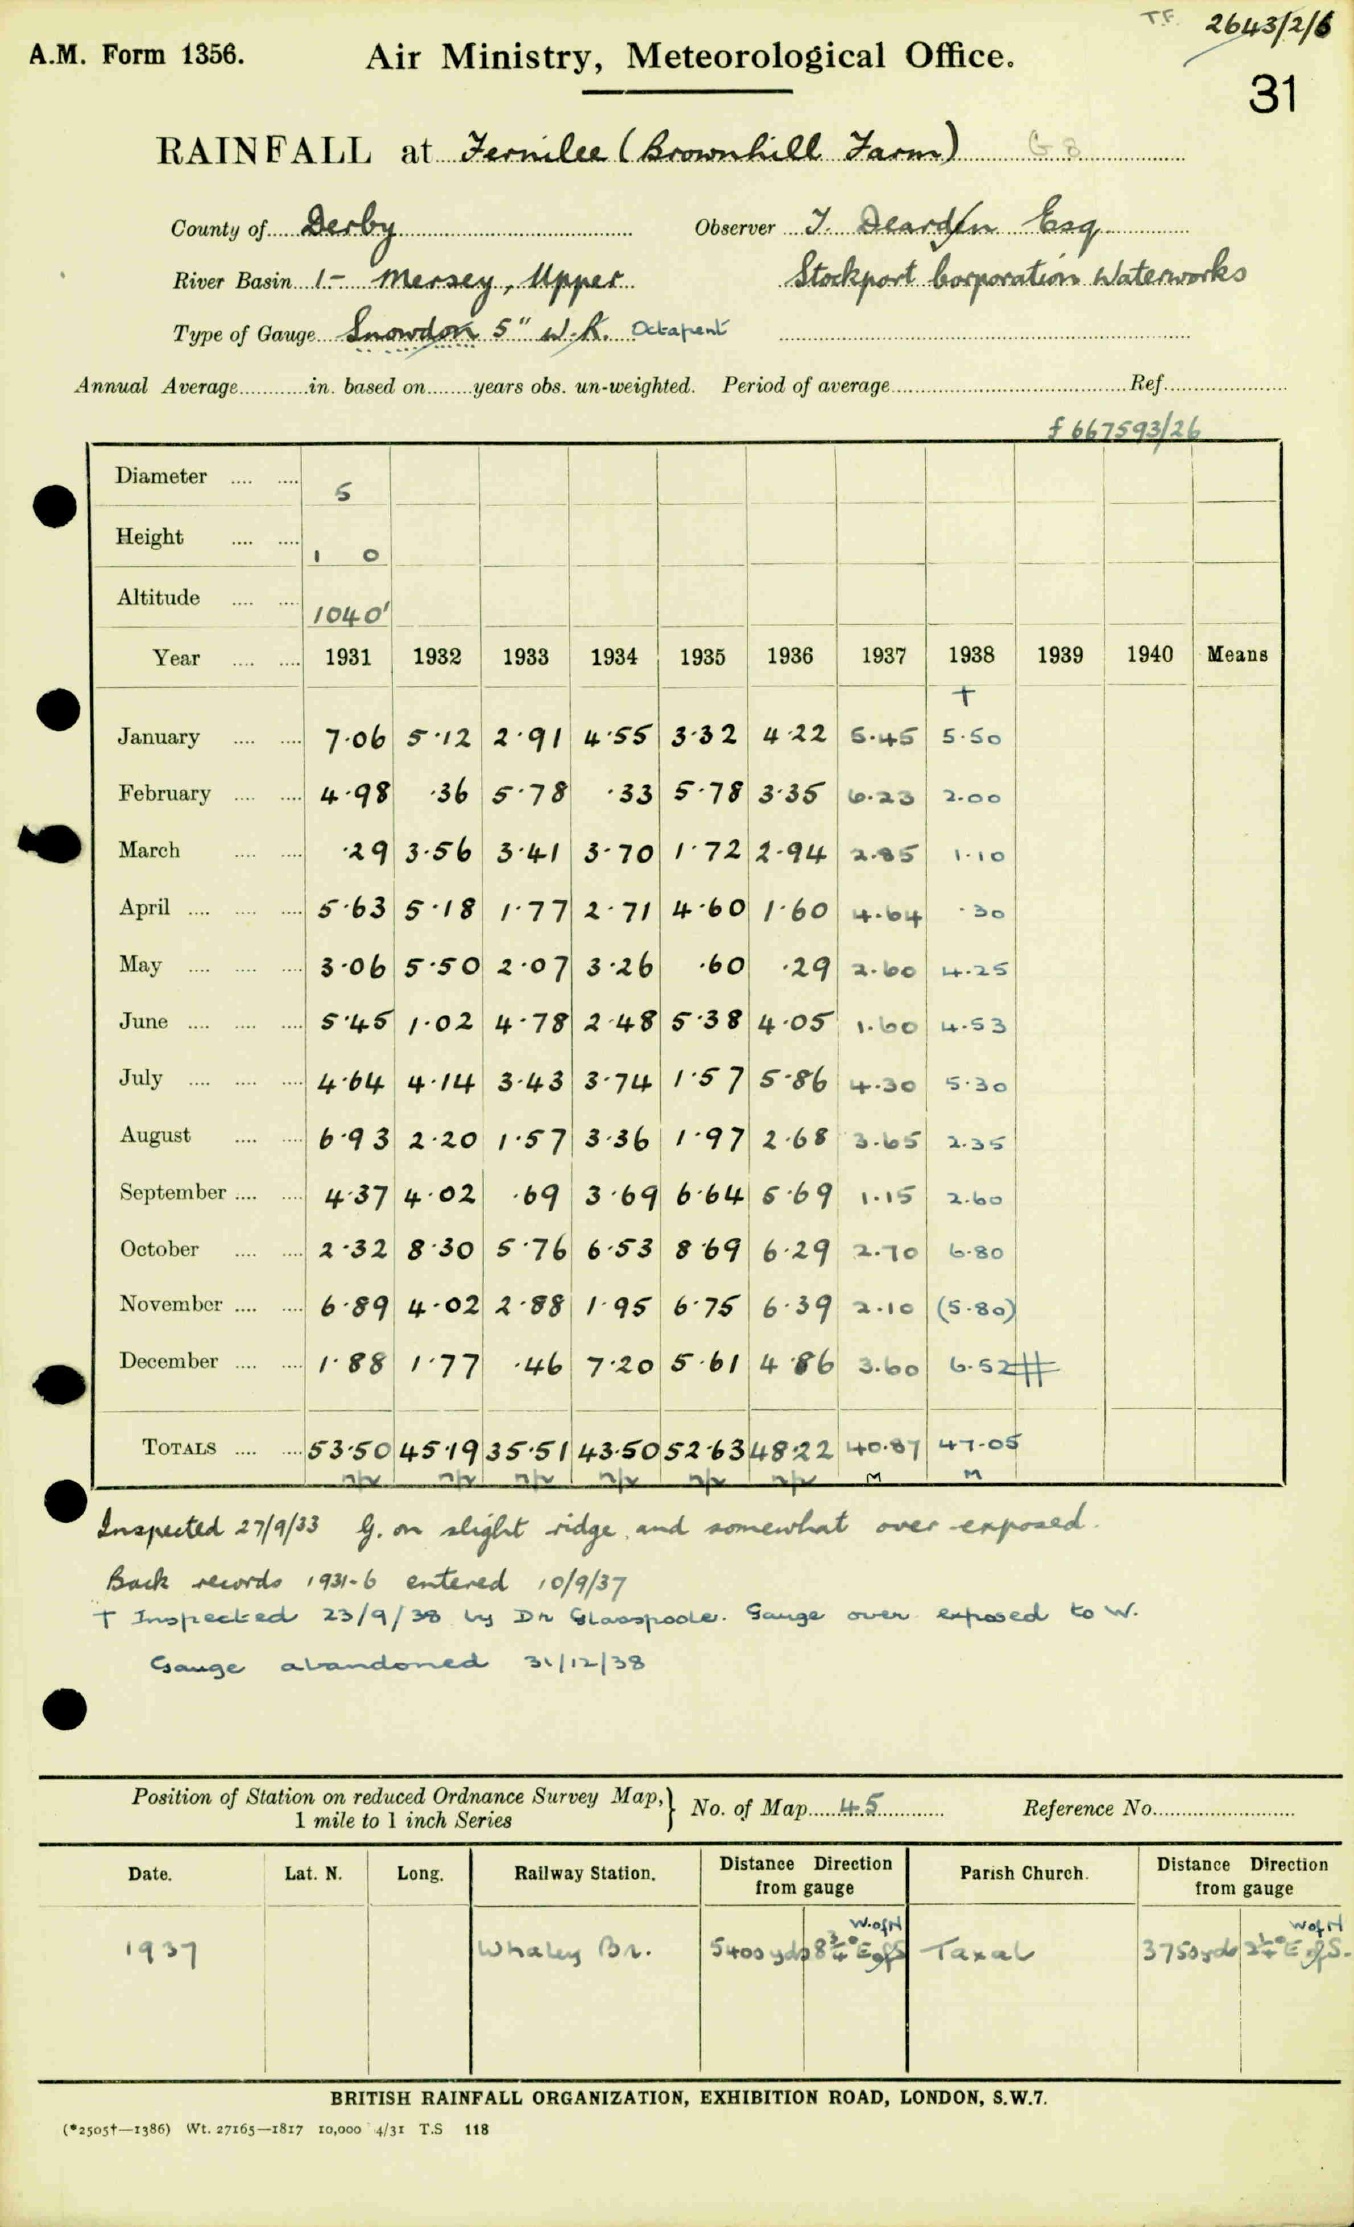 T.F. 2643/2/6
A.M. Form 1356. Air Ministry, Meteorological Office.
31
RAINFALL at Fernilee (Brownhill Farm) G 8
County of Derby Observer T. Dearden Esq.
River Basin 1- Mersey, Upper Stockport Corporation Waterworks
Type of Gauge Snowdon 5" W.R. Octapent
Annual Average in. based on years obs. un-weighted. Period of average Ref.
f 667593/26
Diameter 5
Height 1 0
Altitude 1040'
Year 1931 1932 1933 1934 1935 1936 1937 1938 1939 1940 Means
†
January 7.06 5.12 2.91 4.55 3.32 4.22 5.45 5.50
February 4.98 .36 5.78 .33 5.78 3.35 6.23 2.00
March .29 3.56 3.41 3.70 1.72 2.94 2.85 1.10
April 5.63 5.18 1.77 2.71 4.60 1.60 4.64 .30
May 3.06 5.50 2.07 3.26 .60 .29 2.60 4.25
June 5.45 1.02 4.78 2.48 5.38 4.05 1.60 4.53
July 4.64 4.14 3.43 3.74 1.57 5.86 4.30 5.30
August 6.93 2.20 1.57 3.36 1.97 2.68 3.65 2.35
September 4.37 4.02 .69 3.69 6.64 5.69 1.15 2.60
October 2.32 8.30 5.76 6.53 8.69 6.29 2.70 6.80
November 6.89 4.02 2.88 1.95 6.75 6.39 2.10 (5.80)
December 1.88 1.77 .46 7.20 5.61 4.86 3.60 6.52
TOTALS 53.50 45.19 35.51 43.50 52.63 48.22 40.87 47.05
M M
Inspected 27/9/33 G. on slight ridge and somewhat over-exposed.
Back records 1931-6 entered 10/9/37
† Inspected 23/9/38 by Dr Glasspoole. Gauge over exposed to W.
Gauge abandoned 31/12/38
Position of Station on reduced Ordnance Survey Map, 1 mile to 1 inch Series } No. of Map 45 Reference No.
Date. Lat. N. Long. Railway Station. Distance Direction from gauge Parish Church. Distance Direction from gauge
W of N W of N
1937 Whaley Br. 5400 yds 8¾° E of S Taxal 3750 yds 2¼° E of S.
BRITISH RAINFALL ORGANIZATION, EXHIBITION ROAD, LONDON, S.W.7.
(*2505†—1386) Wt. 27165—1817 10,000 4/31 T.S 118